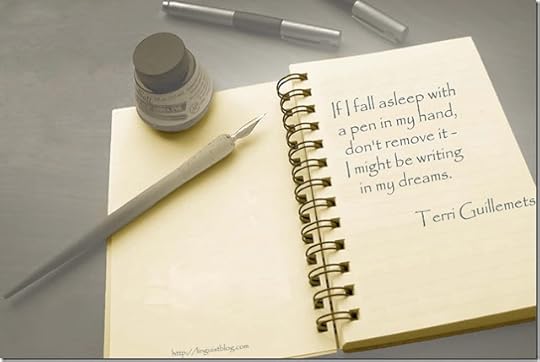 If I fall asleep with
a pen in my hand,
don't remove it -
I might be writing
in my dreams.
Terri Guillemets
http://linguistblog.com